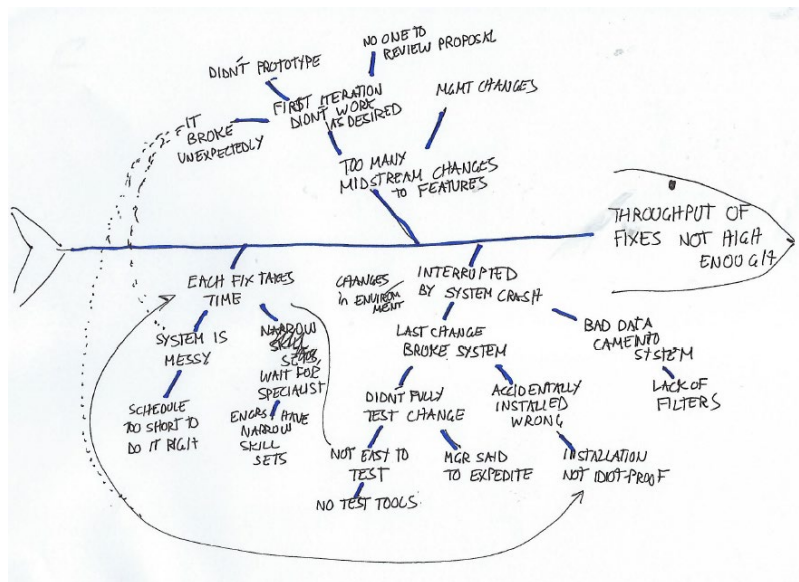 NO ONE TO
REVIEW PROPOSAL
DIDN'T PROTOTYPE
MGMT CHANGES
FIRST ITERATION
DIDN'T WORK
AS DESIRED
IT
BROKE
UNEXPECTEDLY
TOO MANY
MIDSTREAM CHANGES
TO FEATURES
THROUGHPUT OF
FIXES NOT HIGH
ENOUGH
EACH FIX TAKES
TIME
CHANGES
in ENVIRON
MENT
INTERRUPTED
BY SYSTEM CRASH
SYSTEM IS
MESSY
NARROW
SKILL
WAIT FOR
SPECIALIST
LAST CHANGE
BROKE SYSTEM
BAD DATA
CAME INTO
SYSTEM
SCHEDULE
TOO SHORT TO
DO IT RIGHT
ENGRS HAVE
NARROW
SKILL
SETS
DIDN'T FULLY
TEST CHANGE
ACCIDENTALLY
INSTALLED
WRONG
LACK OF
FILTERS
NOT EASY TO
TEST
MGR SAID
TO EXPEDITE
INSTALLATION
NOT IDIOT-PROOF
NO TEST TOOLS